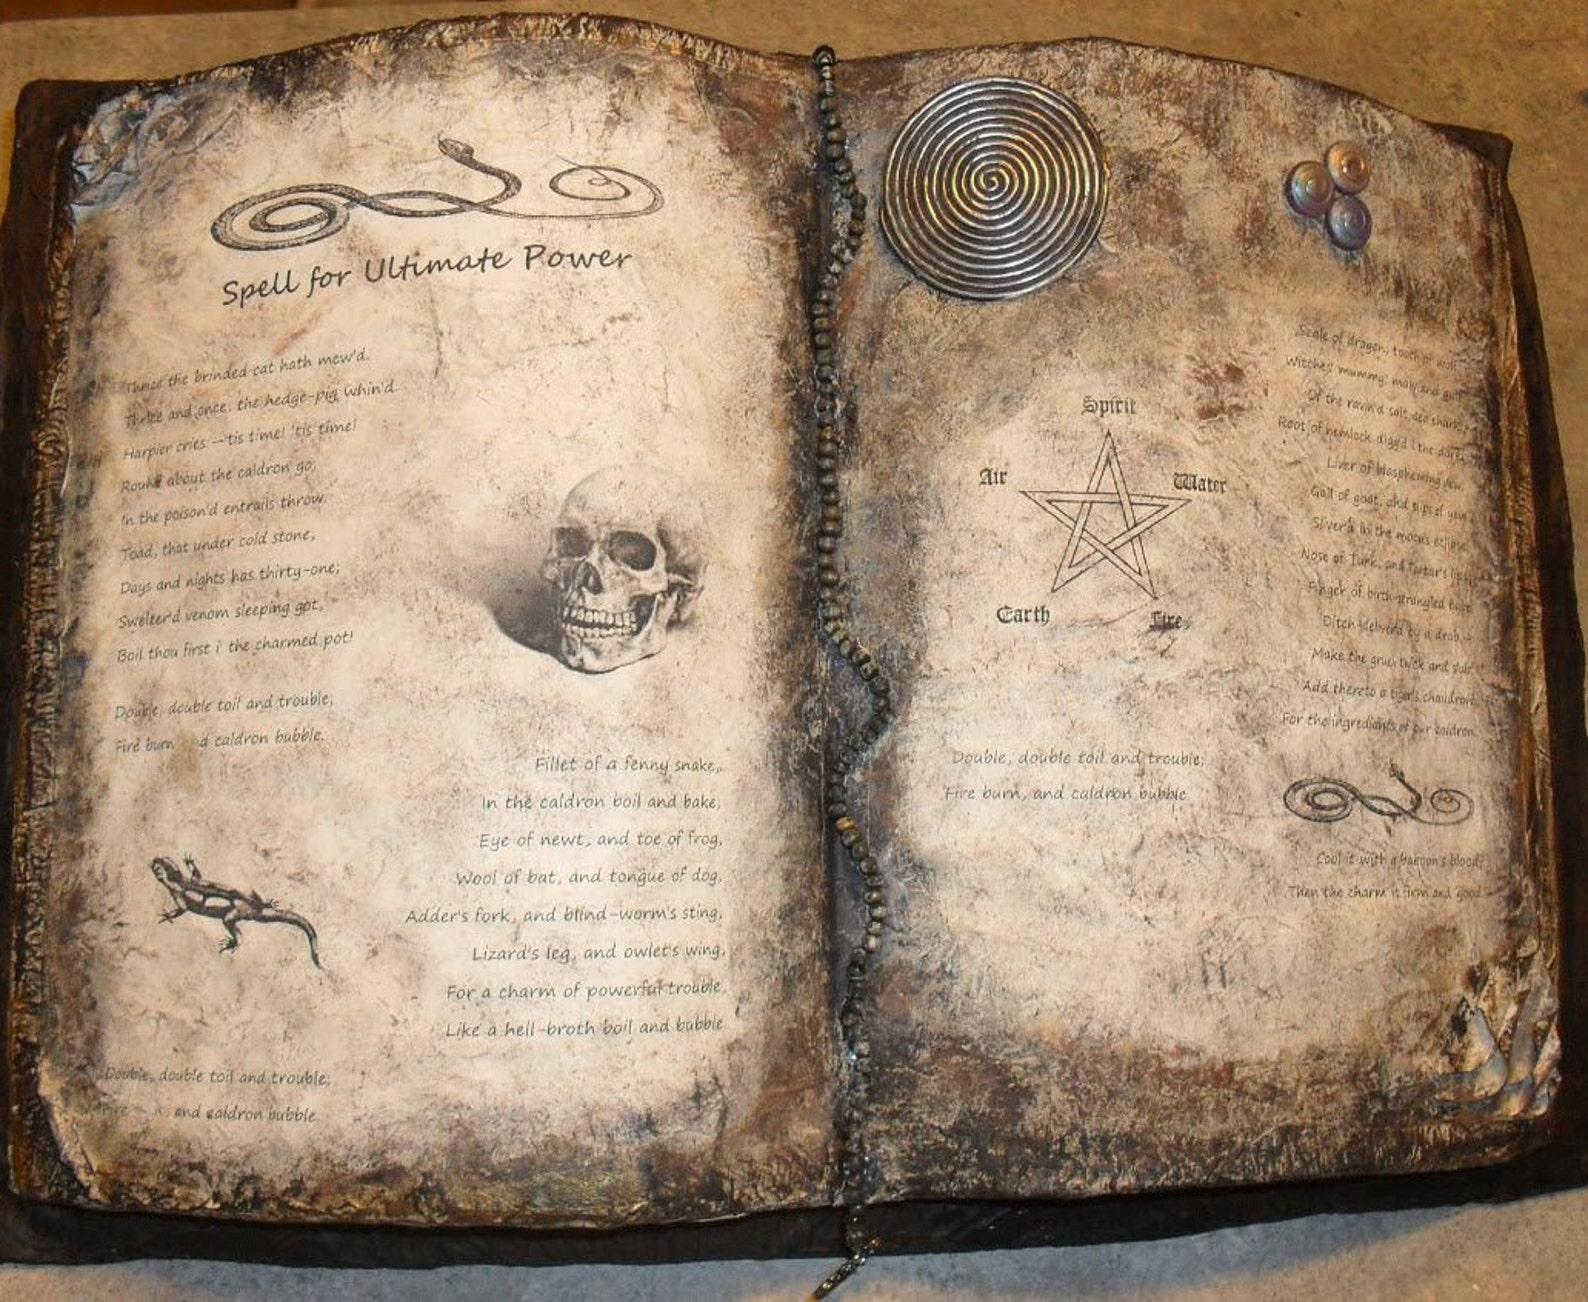 Spell for Ultimate Power
Thrice the brinded cat hath mew'd.
Thrice and once, the hedge-pig whin'd.
Harpier cries:—'tis time! 'tis time!
Round about the caldron go;
In the poison'd entrails throw.
Toad, that under cold stone,
Days and nights has thirty-one;
Swelter'd venom sleeping got,
Boil thou first i' the charmed pot!
Double, double toil and trouble;
Fire burn d caldron bubble.
Fillet of a fenny snake,
In the caldron boil and bake;
Eye of newt, and toe of frog,
Wool of bat, and tongue of dog,
Adder's fork, and blind-worm's sting,
Lizard's leg, and owlet's wing,
For a charm of powerful trouble,
Like a hell-broth boil and bubble
Double, double toil and trouble;
and caldron bubble.
Spirit
Air
Water
Earth
Fire
Double, double toil and trouble;
Fire burn, and caldron bubble
Scale of dragon, tooth of wolf,
Witches' mummy, maw and gulf
Of the ravin'd salt-sea shark,
Root of hemlock digg'd i the dark,
Liver of blaspheming Jew,
Gall of goat, and slips of yew
Sliver'd in the moon's eclipse,
Nose of Turk, and Tartar's lips,
Finger of birth-strangled babe
Ditch-deliver'd by a drab,—
Make the gruel thick and slab:
Add thereto a tiger's chaudron,
For the ingredients of our caldron.
Cool it with a baboon's blood,
Then the charm is firm and good.